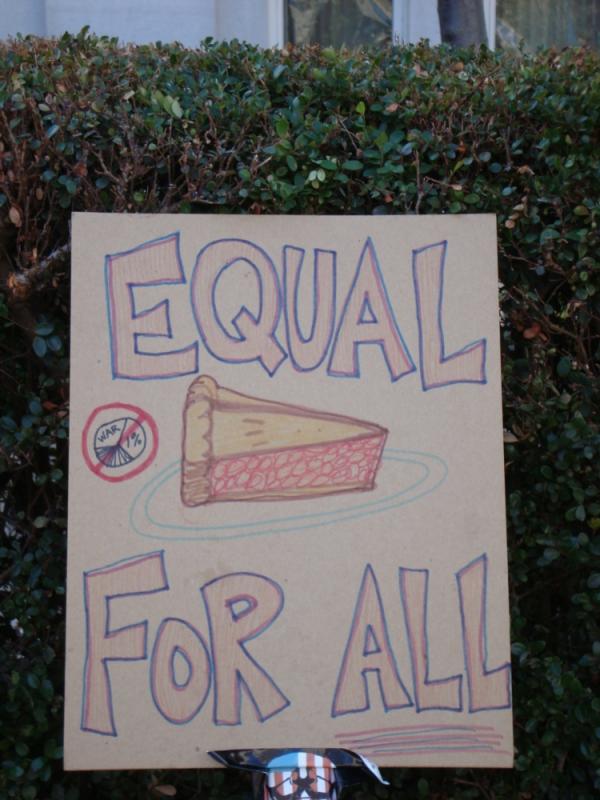 EQUAL
WAR
1%
FOR ALL